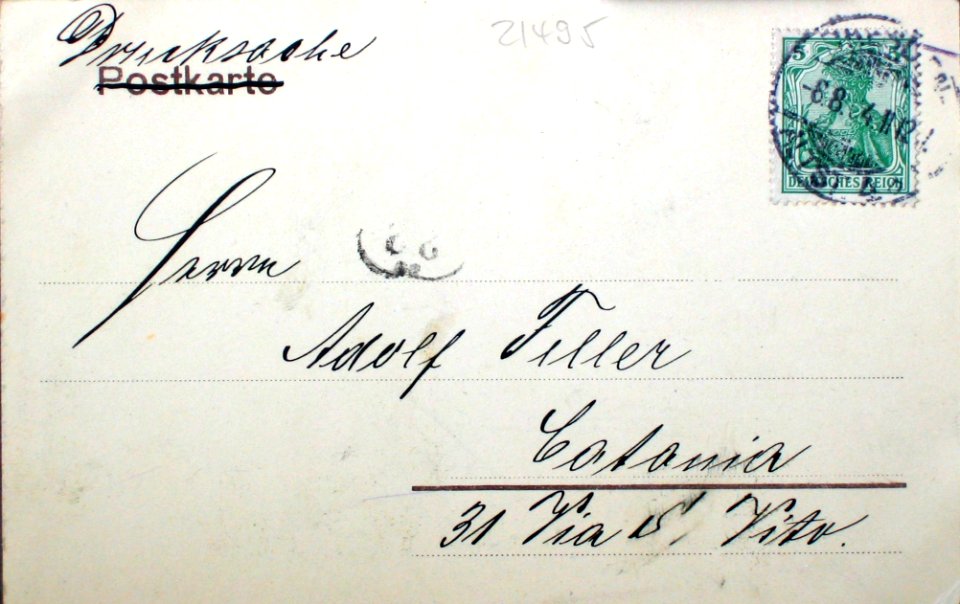 Drucksache
Postkarte
21495
5
-6.8. 4.11-12
DEUTSCHES REICH
Herrn
Adolf Filler
Catania
31 Via S. Vito.